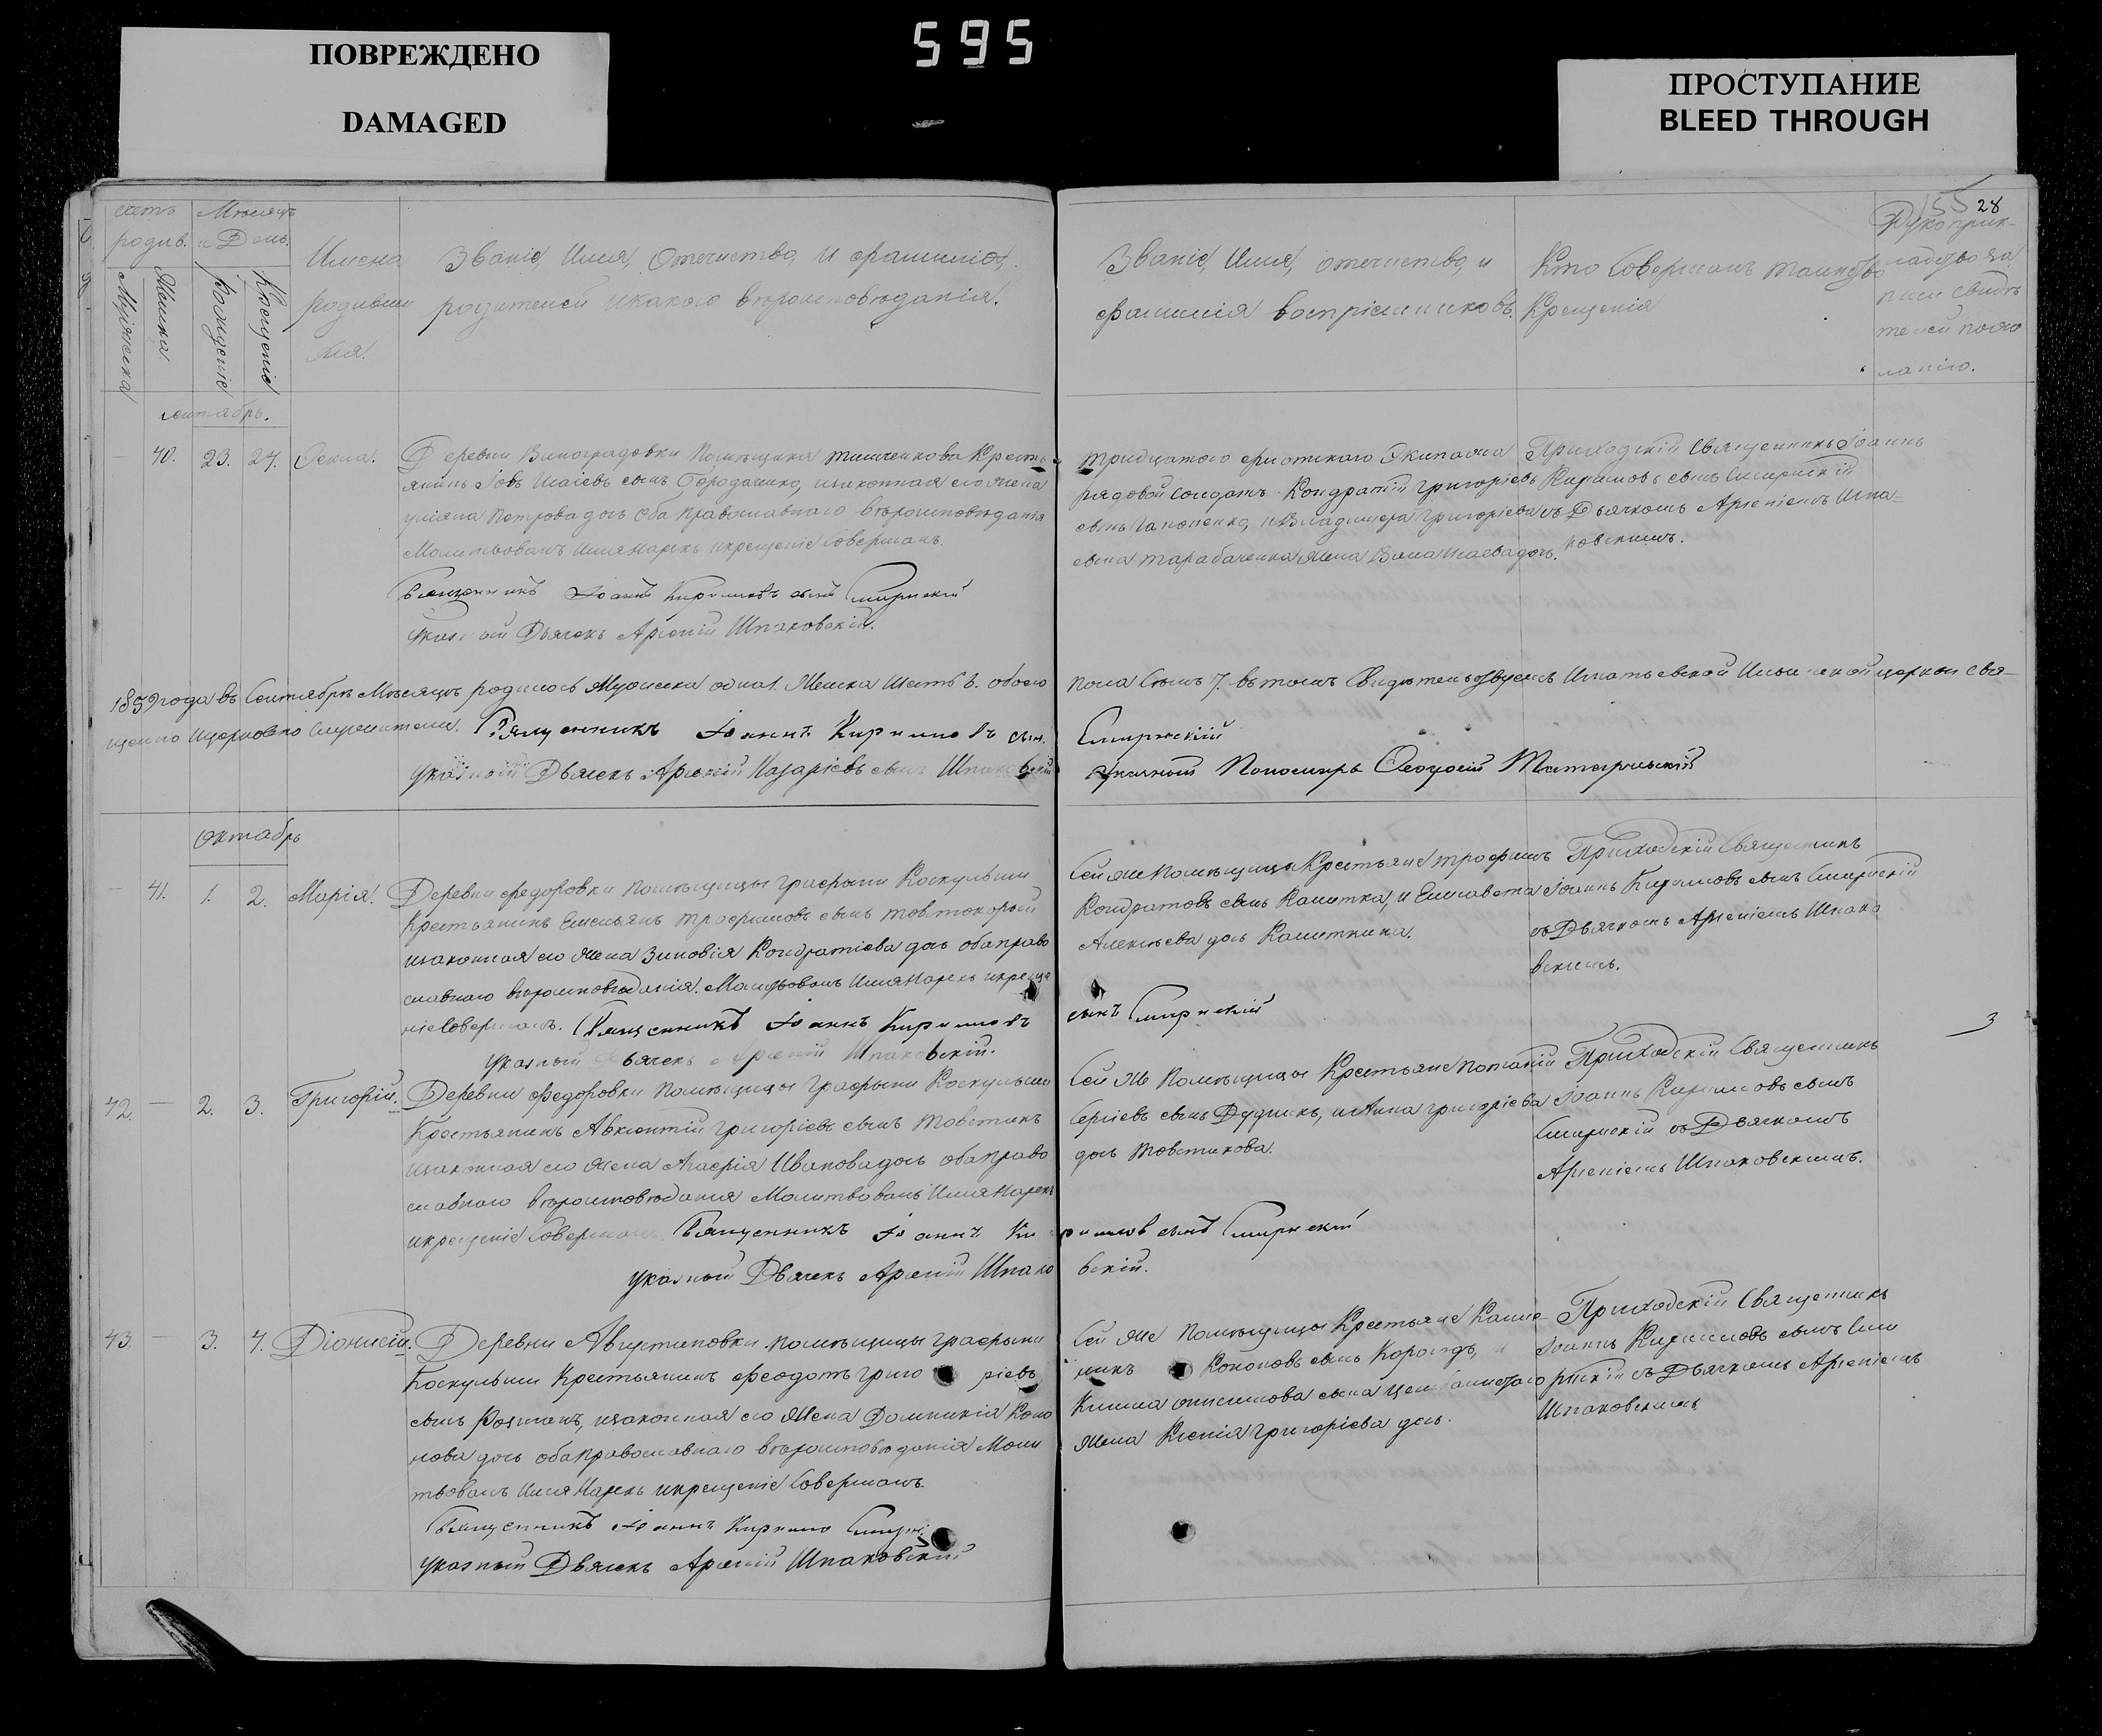 595
ПОВРЕЖДЕНО
DAMAGED
ПРОСТУПАНИЕ
BLEED THROUGH
28
счетъ
родив.
Мужеска
Женска
Мѣсяцъ
и День.
Рожденіе
Крещеніе
Имена
родивши
мся.
Званіе, Имя, Отечиство, и фамилія,
родителей икакого вѣроисповѣданія.
Званіе, Имя, отечиство, и
фамилія воспріемниковъ.
Кто Совершалъ таинство
Крещенія
Рукоприк-
ладство за
писи свидѣ
телей по же
ланію.
Сентябрь.
40. 23. 24.
Деревни Виноградовки Помѣщика Крестъ-
янинъ Іовъ Исаіевъ сынъ Городаченко, изаконная его жена
Петрова дочь Оба православнаго вѣроисповѣданія
Молитвовалъ имя Нарекъ икрещеніе Совершалъ.
Священникъ Іоаннъ Кириловъ сынъ Смирнскій
указный Дьячекъ Арсеній Шпаковскій.
тридцатого флотскаго Экипажа
рядовой солдатъ Кондратій григоріевъ
сынъ Гапоненко, иВладимера григоріева
сына тарабаченка жена Исаева дочь.
Приходскій Священникъ Іоаннъ
Кириловъ сынъ Смирнскій
съ Дьячкомъ Арсеніемъ Шпа-
ковскимъ.
1859 года въ Сентябрѣ Мѣсяцѣ родилось Мужеска одна 1. Женска Шесть 6. обоего
щенно ицерковно Служители. Священникъ Іоаннъ Кириловъ сын.
указный Дьячекъ Арсеній Назаріевъ сынъ Шпаковскій
пола Семь 7. втомъ Свидѣтельствуемъ церкви Свя-
Смирнскій
указный Пономарь
Октябрь
41. 1. 2. Марія.
Деревни федоровки помѣщицы графыни Коскульши
Крестьянинъ Емельянъ трофимовъ сынъ товтокорый
изаконная его жена Зиновія Кондратіева дочь оба право
славнаго вѣроисповѣданія. Молитвовалъ Имя Нарекъ икреще
ніе Совершалъ. Священникъ Іоаннъ Кириловъ
указный Дьячекъ Арсеній Шпаковскій.
Сей же помѣщицы Крестьяне трофимъ
Кондратовъ сынъ Калитка, и Елисавета
Алексѣева дочь Калиткина.
сынъ Смирнскій
Приходскій Священникъ
Іоаннъ Кириловъ сынъ Смирнскій
съ Дьячкомъ Арсеніемъ Шпако
вскимъ.
3
42. — 2. 3. Григорій.
Деревни федоровки помѣщицы графыни Коскульши
Крестьянинъ Авксентій григоріевъ сынъ товстикъ
изаконная его жена Агафія Иванова дочь оба право
славнаго вѣроисповѣданія Молитвовалъ Имя Нарекъ
икрещеніе Совершалъ. Священникъ Іоаннъ Ки
указный Дьячекъ Арсеній Шпако
Сей же Помѣщицы Крестьяне потапій
Сергіевъ сынъ Дудникъ, и Анна григоріева
дочь товстикова.
риловъ сынъ Смирнскій
вскій.
Приходскій Священникъ
Іоаннъ Кириловъ сынъ
Смирнскій съ Дьячкомъ
Арсеніемъ Шпаковскимъ.
43 — 3. 4. Діонисій.
Деревни Августиновки помѣщицы графыни
Коскульши Крестьянинъ феодотъ григо ріевъ
сынъ изаконная его жена Домникія Коно
нова дочь оба православнаго вѣроисповѣданія Моли
твовалъ Имя Нарекъ икрещеніе Совершалъ.
Священникъ Іоаннъ Кирило Смирнс
указный Дьячекъ Арсеній Шпаковскій
Сей же Помѣщицы Крестьяне Кали-
никъ Кононовъ сынъ и
онисимова сына
жена Ксенія григоріева дочь.
Приходскій Священникъ
Іоаннъ Кириловъ сынъ Сми
рнскій съ Дьячкомъ Арсеніемъ
Шпаковскимъ